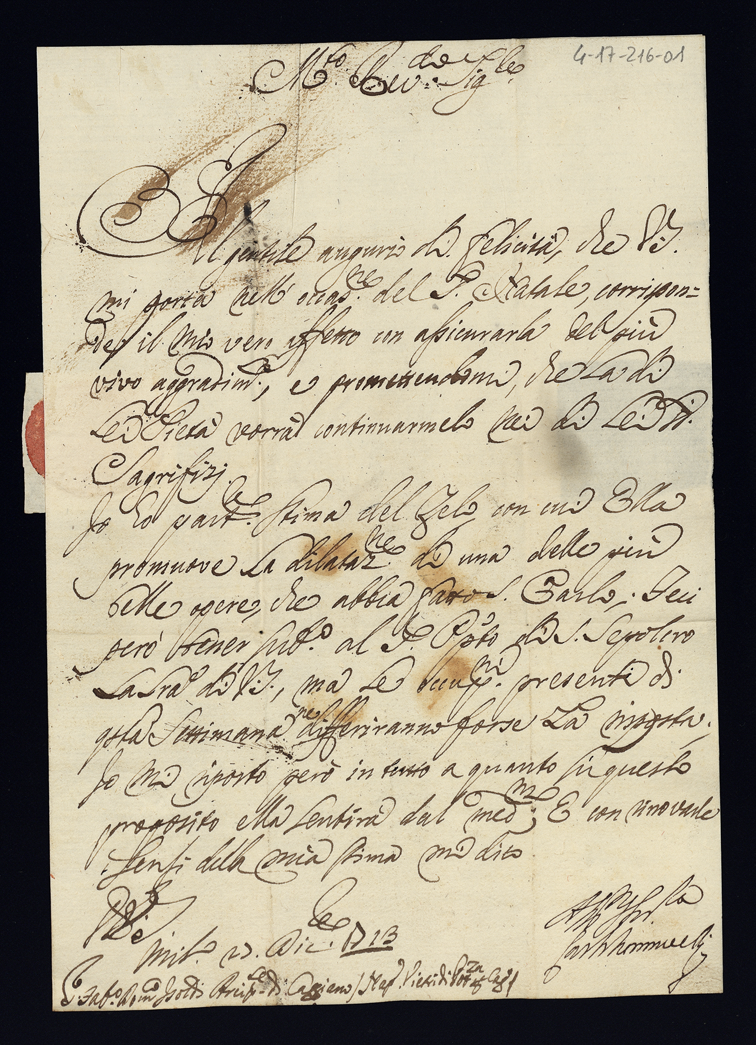 4-17-216-01
M.to Rev.do Sig.re
Al gentile augurio di felicità, che V.S.
mi porta nell' occas.ne del S. Natale, corrispon=
de il mio vero affetto con assicurarla del più
vivo aggradim.to, e promettendomi, che la di
Lei Pietà vorrà continuarmelo ne' di Lei SS.
Sagrifizj.
Io ho part.re stima del Zelo, con cui Ella
promuove la dilataz.ne di una delle più
belle opere, che abbia fatto S. Carlo. Feci
però tener sub.o al S.r di S. Sepolcro
la di V.S., ma le occup.ni presenti di
q.sta Settimana differiranno forse la risposta.
Io mi riporto però in tutto a quanto su questo
proposito ella sentirà dal med.mo E con rinovarle
i sensi della mia stima mi dico
D.V.S.
Mil.o 27. Dic.re 1713